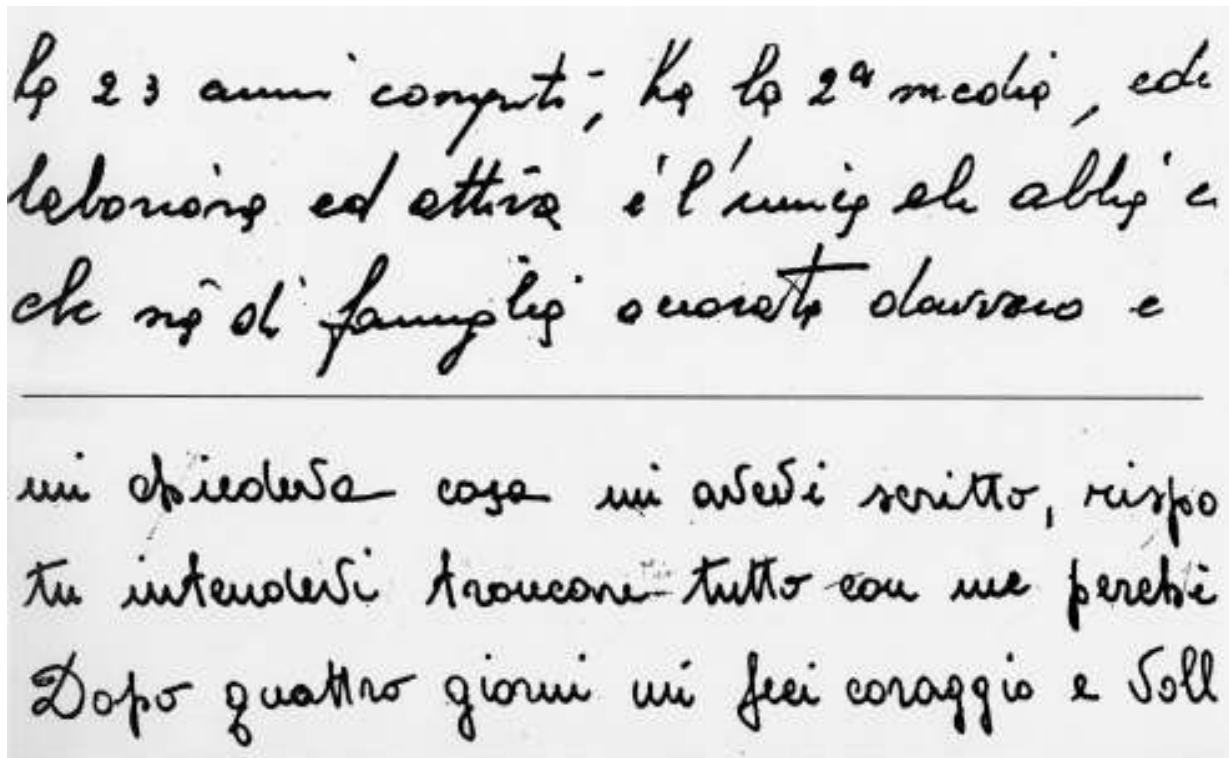 ha 23 anni compiuti, ha la 2ª media, ed
laboriosa ed attiva è l'unica che abbia
che sia di famiglia onorata davvero e
mi chiedeva cosa mi avevi scritto, rispo
tu intendevi troncare tutto con me perchè
Dopo quattro giorni mi feci coraggio e voll